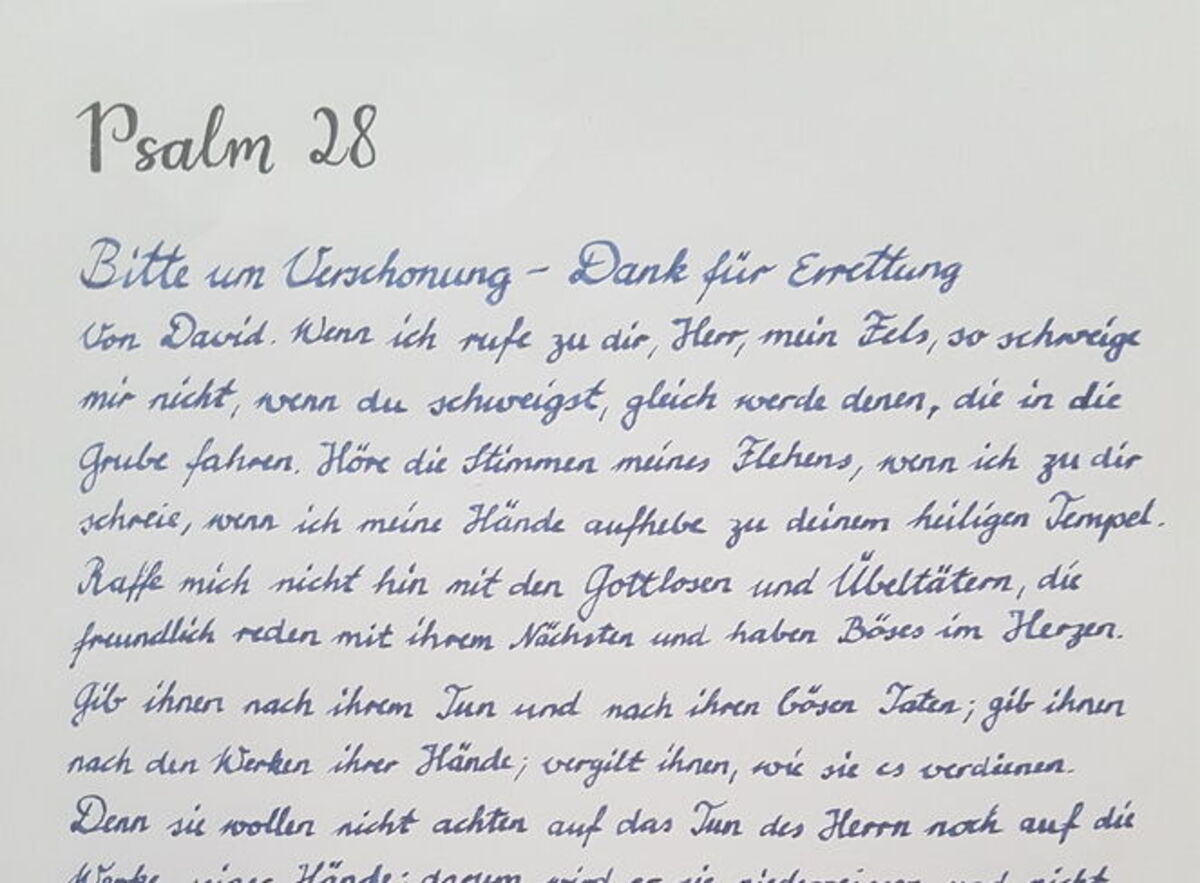 Psalm 28
Bitte um Verschonung - Dank für Errettung
Von David. Wenn ich rufe zu dir, Herr, mein Fels, so schweige
mir nicht, wenn du schweigst, gleich werde denen, die in die
Grube fahren. Höre die Stimmen meines Flehens, wenn ich zu dir
schreie, wenn ich meine Hände aufhebe zu deinem heiligen Tempel.
Raffe mich nicht hin mit den Gottlosen und Übeltätern, die
freundlich reden mit ihrem Nächsten und haben Böses im Herzen.
Gib ihnen nach ihrem Tun und nach ihren bösen Taten; gib ihnen
nach den Werken ihrer Hände; vergilt ihnen, wie sie es verdienen.
Denn sie wollen nicht achten auf das Tun des Herrn noch auf die
Werke seiner Hände; darum wird er sie niederreissen und nicht